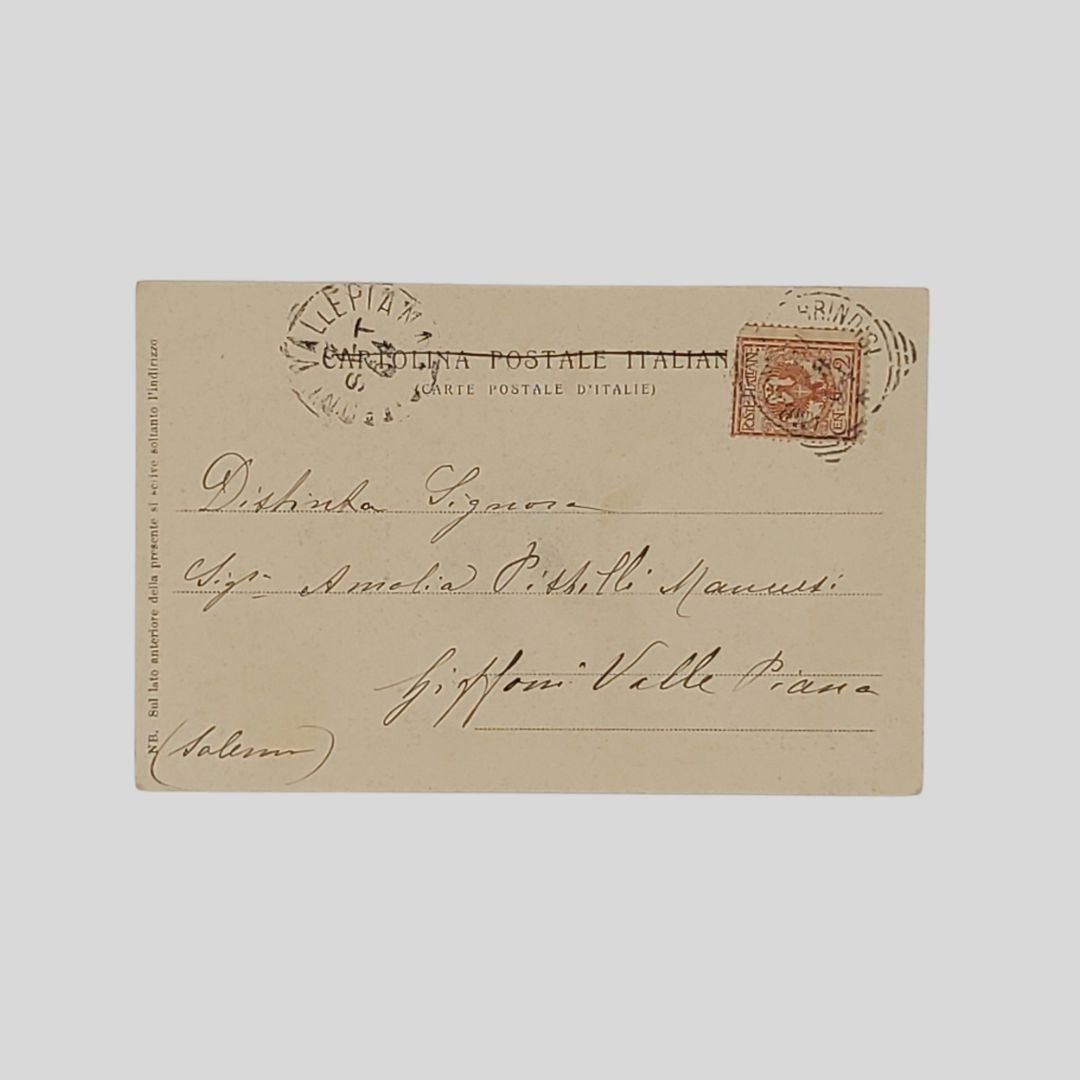 VALLEPIANA
BRINDISI
CARTOLINA POSTALE ITALIAN
(CARTE POSTALE D'ITALIE)
POSTE ITALIANE
CEN 2
Distinta Signora
Sigra Amalia Pistilli Mancusi
Giffoni Valle Piana
(Salerno)
NB. Sul lato anteriore della presente si scrive soltanto l'indirizzo